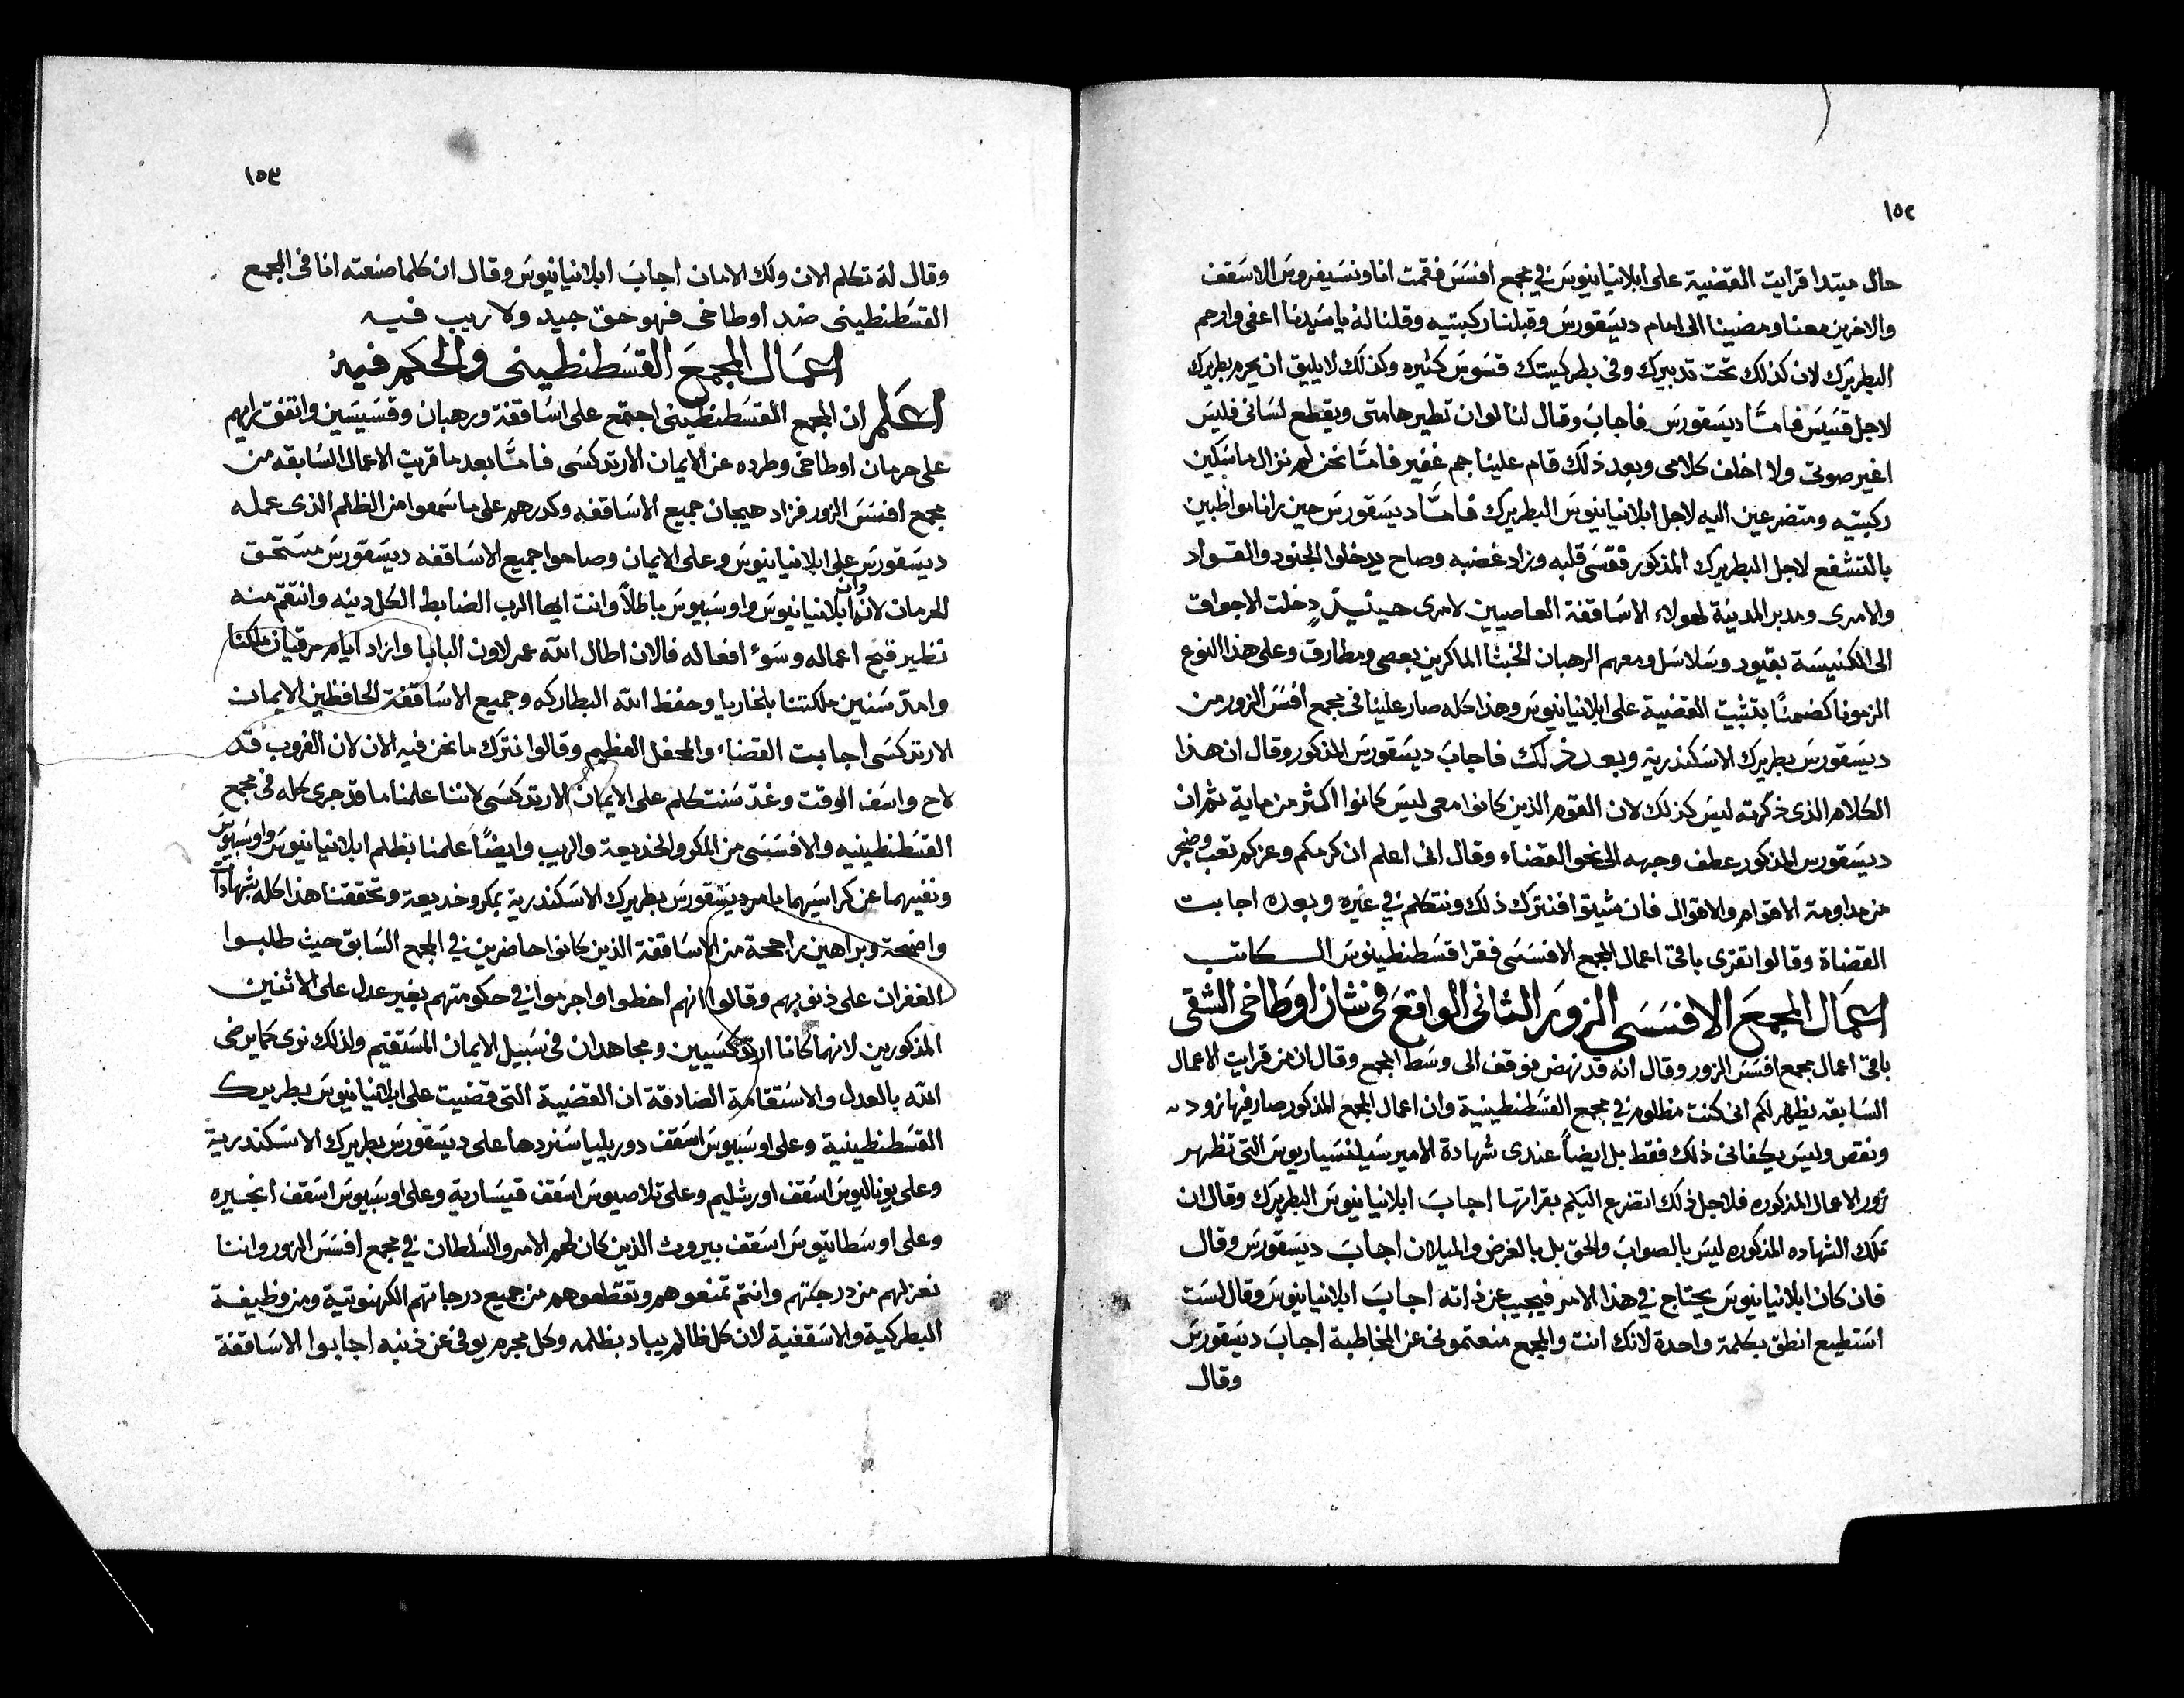 ١٥٢
حال مبتدا قرايت القضية على ابلانيانيوس في مجمع افسس فقمت انا ونسيفروس الاسقف
والاخرين معنا ومضينا الى امام ديسقورس وقبلنا ركبتيه وقلنا له يا سيدنا اعفي وارحم
البطريرك لان كذلك تحت تدبيرك وفي بطركيتك قسوس كثيره وكذلك لا يليق ان يحرم بطريرك
لاجل قسيس فامّا ديسقورس فاجاب وقال لنا لوان تطير هامتي ويقطع لساني فليس
اغير صوتي ولا اخلف كلامي وبعد ذلك قام علينا جم غفير فامّا نحن لم نزال ماسكين
ركبتيه ومتضرعين اليه لاجل ابلانيانيوس البطريرك فامّا ديسقورس حين رانا مواظبين
بالتشفع لاجل البطريرك المذكور فقسى قلبه وزاد غضبه وصاح يدخلوا الجنود والقواد
والامرى ومدبر المدينة لهولاء الاساقفة العاصيين لامرى حينيذٍ دخلت الاجواق
الى الكنيسة بقيود وسلاسل ومعهم الرهبان الخبثا الماكرين بعصي ومطارق وعلى هذا النوع
الزمونا كضمنًا بتثبيت القضية على ابلانيانيوس وهذا كله صار علينا في مجمع افسس الزور من
ديسقورس بطريرك الاسكندرية وبعد ذلك فاجاب ديسقورس المذكور وقال ان هذا
الكلام الذى ذكرته ليس كذلك لان القوم الذين كانوا معى ليس كانوا اكثر من ماية ثم ان
ديسقورس المذكور عطف وجهه الى نحو القضاء وقال انى اعلم ان كرمكم وعزكم تعب وضجر
من مداومة الاقوام والاقوال فان شيتوا فنترك ذلك ونتكلم في غيره وبعده اجابت
القضاة وقالوا تقرى باقى اعمال المجمع الافسسى فقرا قسطنطينوس الكاتب
اعمال المجمع الافسسى الزور الثانى الواقع فى شان اوطاخى الشقى
باقى اعمال مجمع افسس الزور وقال انه قد نهض فوقف الى وسط المجمع وقال ان من قرايت الاعمال
السابقه يظهر لكم انى كنت مظلوم في مجمع القسطنطينية وان اعمال المجمع المذكور صار فيها زود
ونقص وليس يكفانى ذلك فقط بل ايضاً عندى شهادة الامير سيلنسياريوس التى تظهر
زور الاعمال المذكوره فلاجل ذلك اتضرع اليكم بقراتها اجاب ابلانيانيوس البطريرك وقال ان
تلك الشهاده المذكوره ليس بالصواب والحق بل بالغرض والميلان اجاب ديسقورس وقال
فان كان ابلانيانيوس يحتاج في هذا الامر فيجيب عن ذاته اجاب ابلانيانيوس وقال لست
استطيع انطق بكلمة واحدة لانك انت والمجمع منعتمونى عن المخاطبة اجاب ديسقورس
وقال
١٥٣
وقال له تكلم الان ولك الامان اجاب ابلانيانيوس وقال ان كلما صنعته انا فى المجمع
القسطنطينى ضد اوطاخى فهو حق جيد ولا ريب فيه
اعمال المجمع القسطنطينى والحكم فيه
اعلم ان المجمع القسطنطينى اجتمع على اساقفة ورهبان وقسيسين واتفق رايهم
على حرمان اوطاخى وطرده عن الايمان الارتدكسى فامّا بعد ما قريت الاعمال السابقه من
مجمع افسس الزور فزاد هيجان جميع الاساقفه وكدرهم على ما سمعوا من الظلم الذى عمله
ديسقورس على ابلانيانيوس وعلى الايمان وصاحوا جميع الاساقفه ديسقورس مستحق
الحرمان لانه ابلانيانيوس واوسبيوس باطلاً وانت ايها الرب الضابط الكل دينه وانتقم منه
نظير قبح اعماله وسوء افعاله فالان اطال الله عمر لاون البابا وازاد ايام مرقيان ملكنا
وامدّ سنين ملكتنا بلخاريا وحفظ الله البطاركه وجميع الاساقفة الحافظين الايمان
الارتدكسى اجابت القضاء والمحفل العظيم وقالوا نترك ما نحن فيه الان لان الغروب قد
لاح واسف الوقت وغدّ سنتكلم على الايمان الارتدكسى لاننا علمنا ما قد جرى كله فى مجمع
القسطنطينيه والافسسى من المكر والخديعة والريب وايضاً علمنا بظلم ابلانيانيوس واوسبيوس
ونفيهما عن كراسيهما بامر ديسقورس بطريرك الاسكندرية بمكر وخديعة وتحققنا هذا كله بشهادات
واضحة وبراهين راجحة من الاساقفة الذين كانوا حاضرين في المجمع السابق حيث طلبوا
الغفران على ذنوبهم وقالوا انهم اخطوا واجرموا في حكومتهم بغير عدل على الاثنين
المذكورين لانهما كانا ارتدكسيين ومجاهدان فى سبيل الايمان المستقيم ولذلك نرى كما يرضى
الله بالعدل والاستقامة الصادقة ان القضية التى قضيت على ابلانيانيوس بطريرك
القسطنطينية وعلى اوسبيوس اسقف دوريليا سنردها على ديسقورس بطريرك الاسكندرية
وعلى يوناليوس اسقف اورشليم وعلى تلاصيوس اسقف قيسارية وعلى اوسبيوس اسقف انجيره
وعلى اوسطاتيوس اسقف بيروت الذين كان لهم الامر والسلطان في مجمع افسس الزور واننا
نعزلهم من درجتهم وانتم تمنعوهم وتقطعوهم من جميع درجاتهم الكهنوتية ومن وظيفة
البطركية والاسقفية لان كل ظالم يباد بظلمه وكل مجرم يوفى عن ذنبه اجابوا الاساقفة